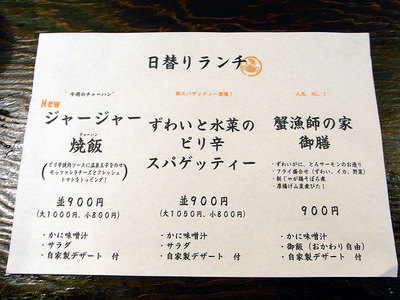 日替りランチ
"今週のチャーハン"
New
ジャージャー
チャーハン
焼飯
(ピリ辛焼肉ソースに温泉玉子をのせ
モッツァレラチーズとフレッシュ
トマトをトッピング!)
並900円
(大1000円、小800円)
・かに味噌汁
・サラダ
・自家製デザート 付
新スパゲッティー登場!
ずわいと水菜の
ピリ辛
スパゲッティー
並900円
(大1050円、小800円)
・かに味噌汁
・サラダ
・自家製デザート 付
人気 NO.1
蟹漁師の家
御膳
・ずわいがに、とろサーモンのお造り
・フライ盛合せ(ずわい、イカ、野菜)
・新じゃが鶏そぼろ煮
・厚揚げ山菜煮びたし
900円
・かに味噌汁
・御飯(おかわり自由)
・自家製デザート 付